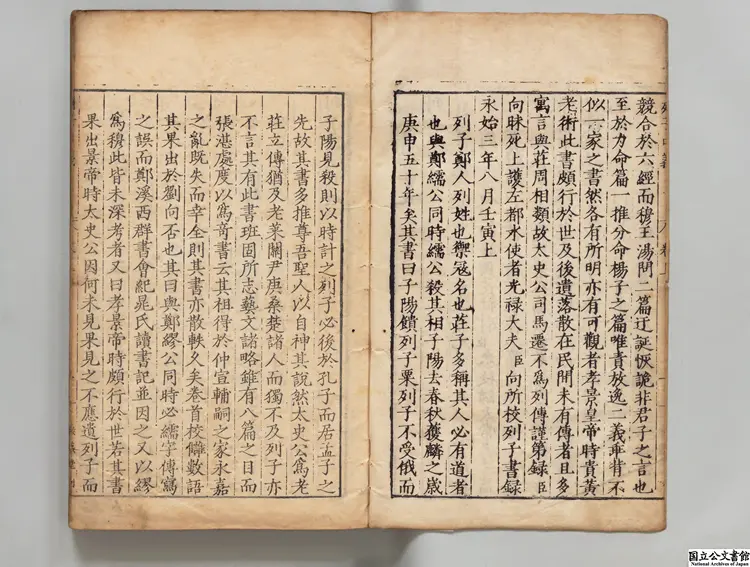 競合於六經而穆王湯問二篇迂誕恢詭非君子之言也
至於力命篇一推分命楊子之篇唯貴放逸二義乖背不
似一家之書然各有所明亦有可觀者孝景皇帝時貴黃
老術此書頗行於世及後遺落散在民間未有傳者且多
寓言與莊周相類故太史公司馬遷不爲列傳謹第錄臣
向昧死上護左都水使者光禄大夫臣向所校列子書錄
永始三年八月壬寅上
列子鄭人列姓也禦寇名也莊子多稱其人必有道者
也與鄭繻公同時繻公殺其相子陽去春秋獲麟之歲
庚申五十年矣其書曰子陽饋列子粟列子不受俄而
子陽見殺則以時計之列子必後於孔子而居孟子之
先故其書多推尊吾聖人以自神其說然太史公爲老
莊立傳猶及老萊關尹庚桑楚諸人而獨不及列子亦
不言其有此書班固所志藝文諸略雖有八篇之目而
張湛處度以爲竒書云其祖得於仲宣輔嗣之家永嘉
之亂既失而幸全則其書亦散軼久矣卷首校讎數語
其果出於劉向否也其曰與鄭繆公同時必繻字傳寫
之誤而鄭溪西群書會紀晁氏讀書記並因之又以繆
爲穆此皆未深考者又曰孝景帝時頗行於世若其書
果出景帝時太史公因何未見果見之不應遺列子而
国立公文書館
National Archives of Japan